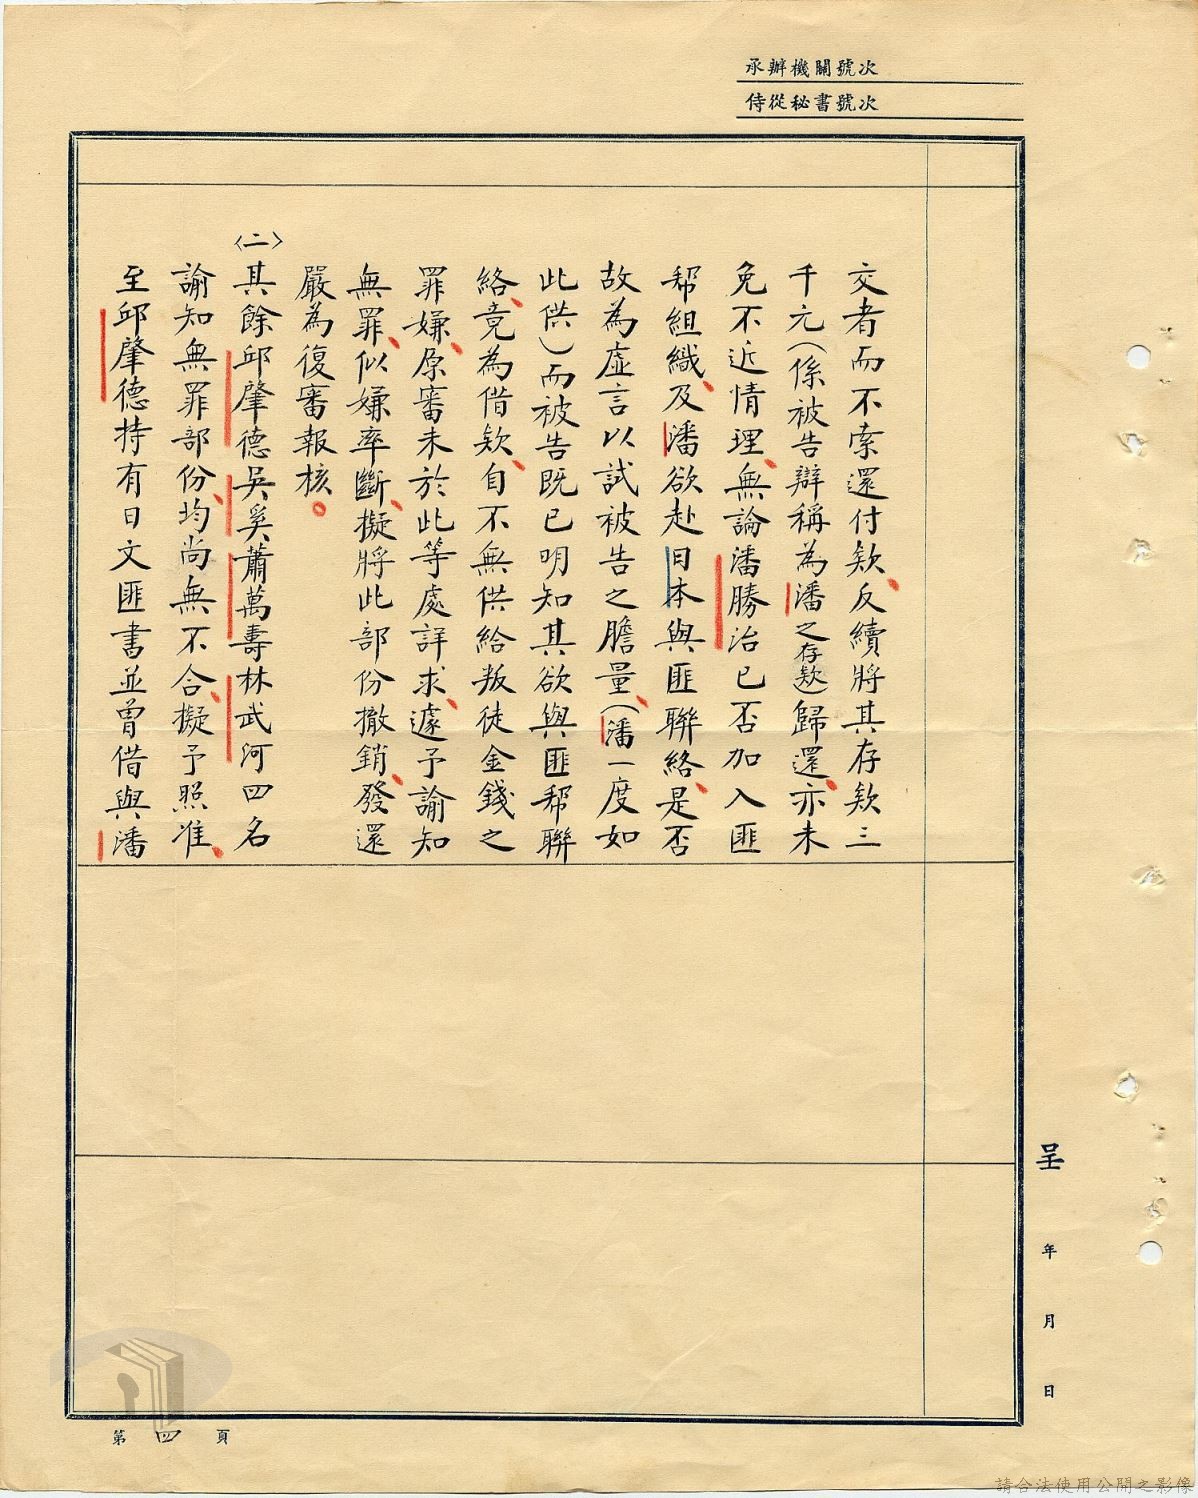 承辦機關號次
侍從秘書號次
交者而不索還付欵、反續將其存欵三
千元(係被告辯稱為潘之存欵)歸還、亦未
免不近情理、無論潘勝治已否加入匪
幇組織、及潘欲赴日本與匪聯絡、是否
故為虛言以試被告之膽量、(潘一度如
此供)而被告既已明知其欲與匪幇聯
絡、竟為借欵、自不無供給叛徒金錢之
罪嫌、原審未於此等處詳求、遽予諭知
無罪、似嫌率斷、擬將此部份撤銷、發還
嚴為復審報核。
〈二〉其餘邱肇德吳奚蕭萬壽林武河四名
諭知無罪部份、均尚無不合、擬予照准、
至邱肇德持有日文匪書並曾借與潘
呈
年
月
日
第四頁
請合法使用公開之影像